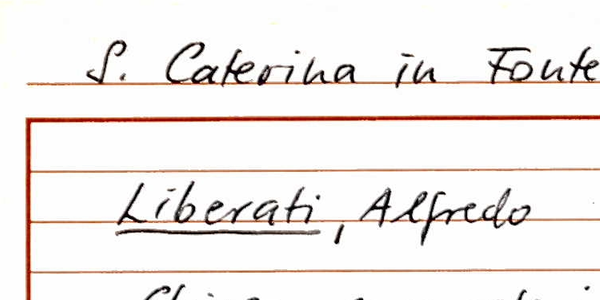 S. Caterina in Fonte
Liberati, Alfredo